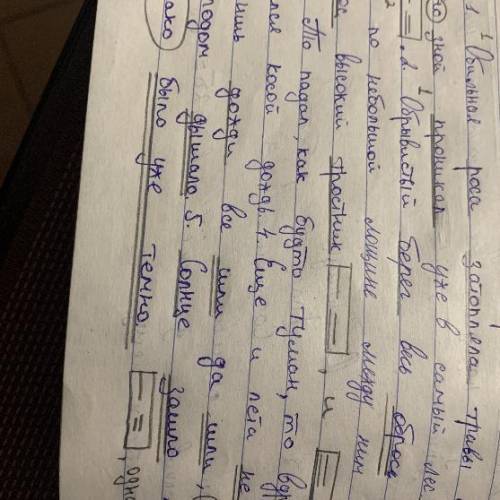 1 Обильная роса затопляла травы
зной проникал уже в самый лес
2. Обрывистый берег весь оброс
по небольшой лощине между ним
ос высокий тростник , и
То падал, как будто туман, то вдр
лся косой дождь. 4. Еще и лета не
ишь дожди все шли да шли,
лодом дышала 5. Солнце зашло
ако было уже темно. , одн